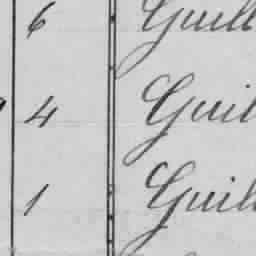 6 Guill
4 Guil
1 Guill